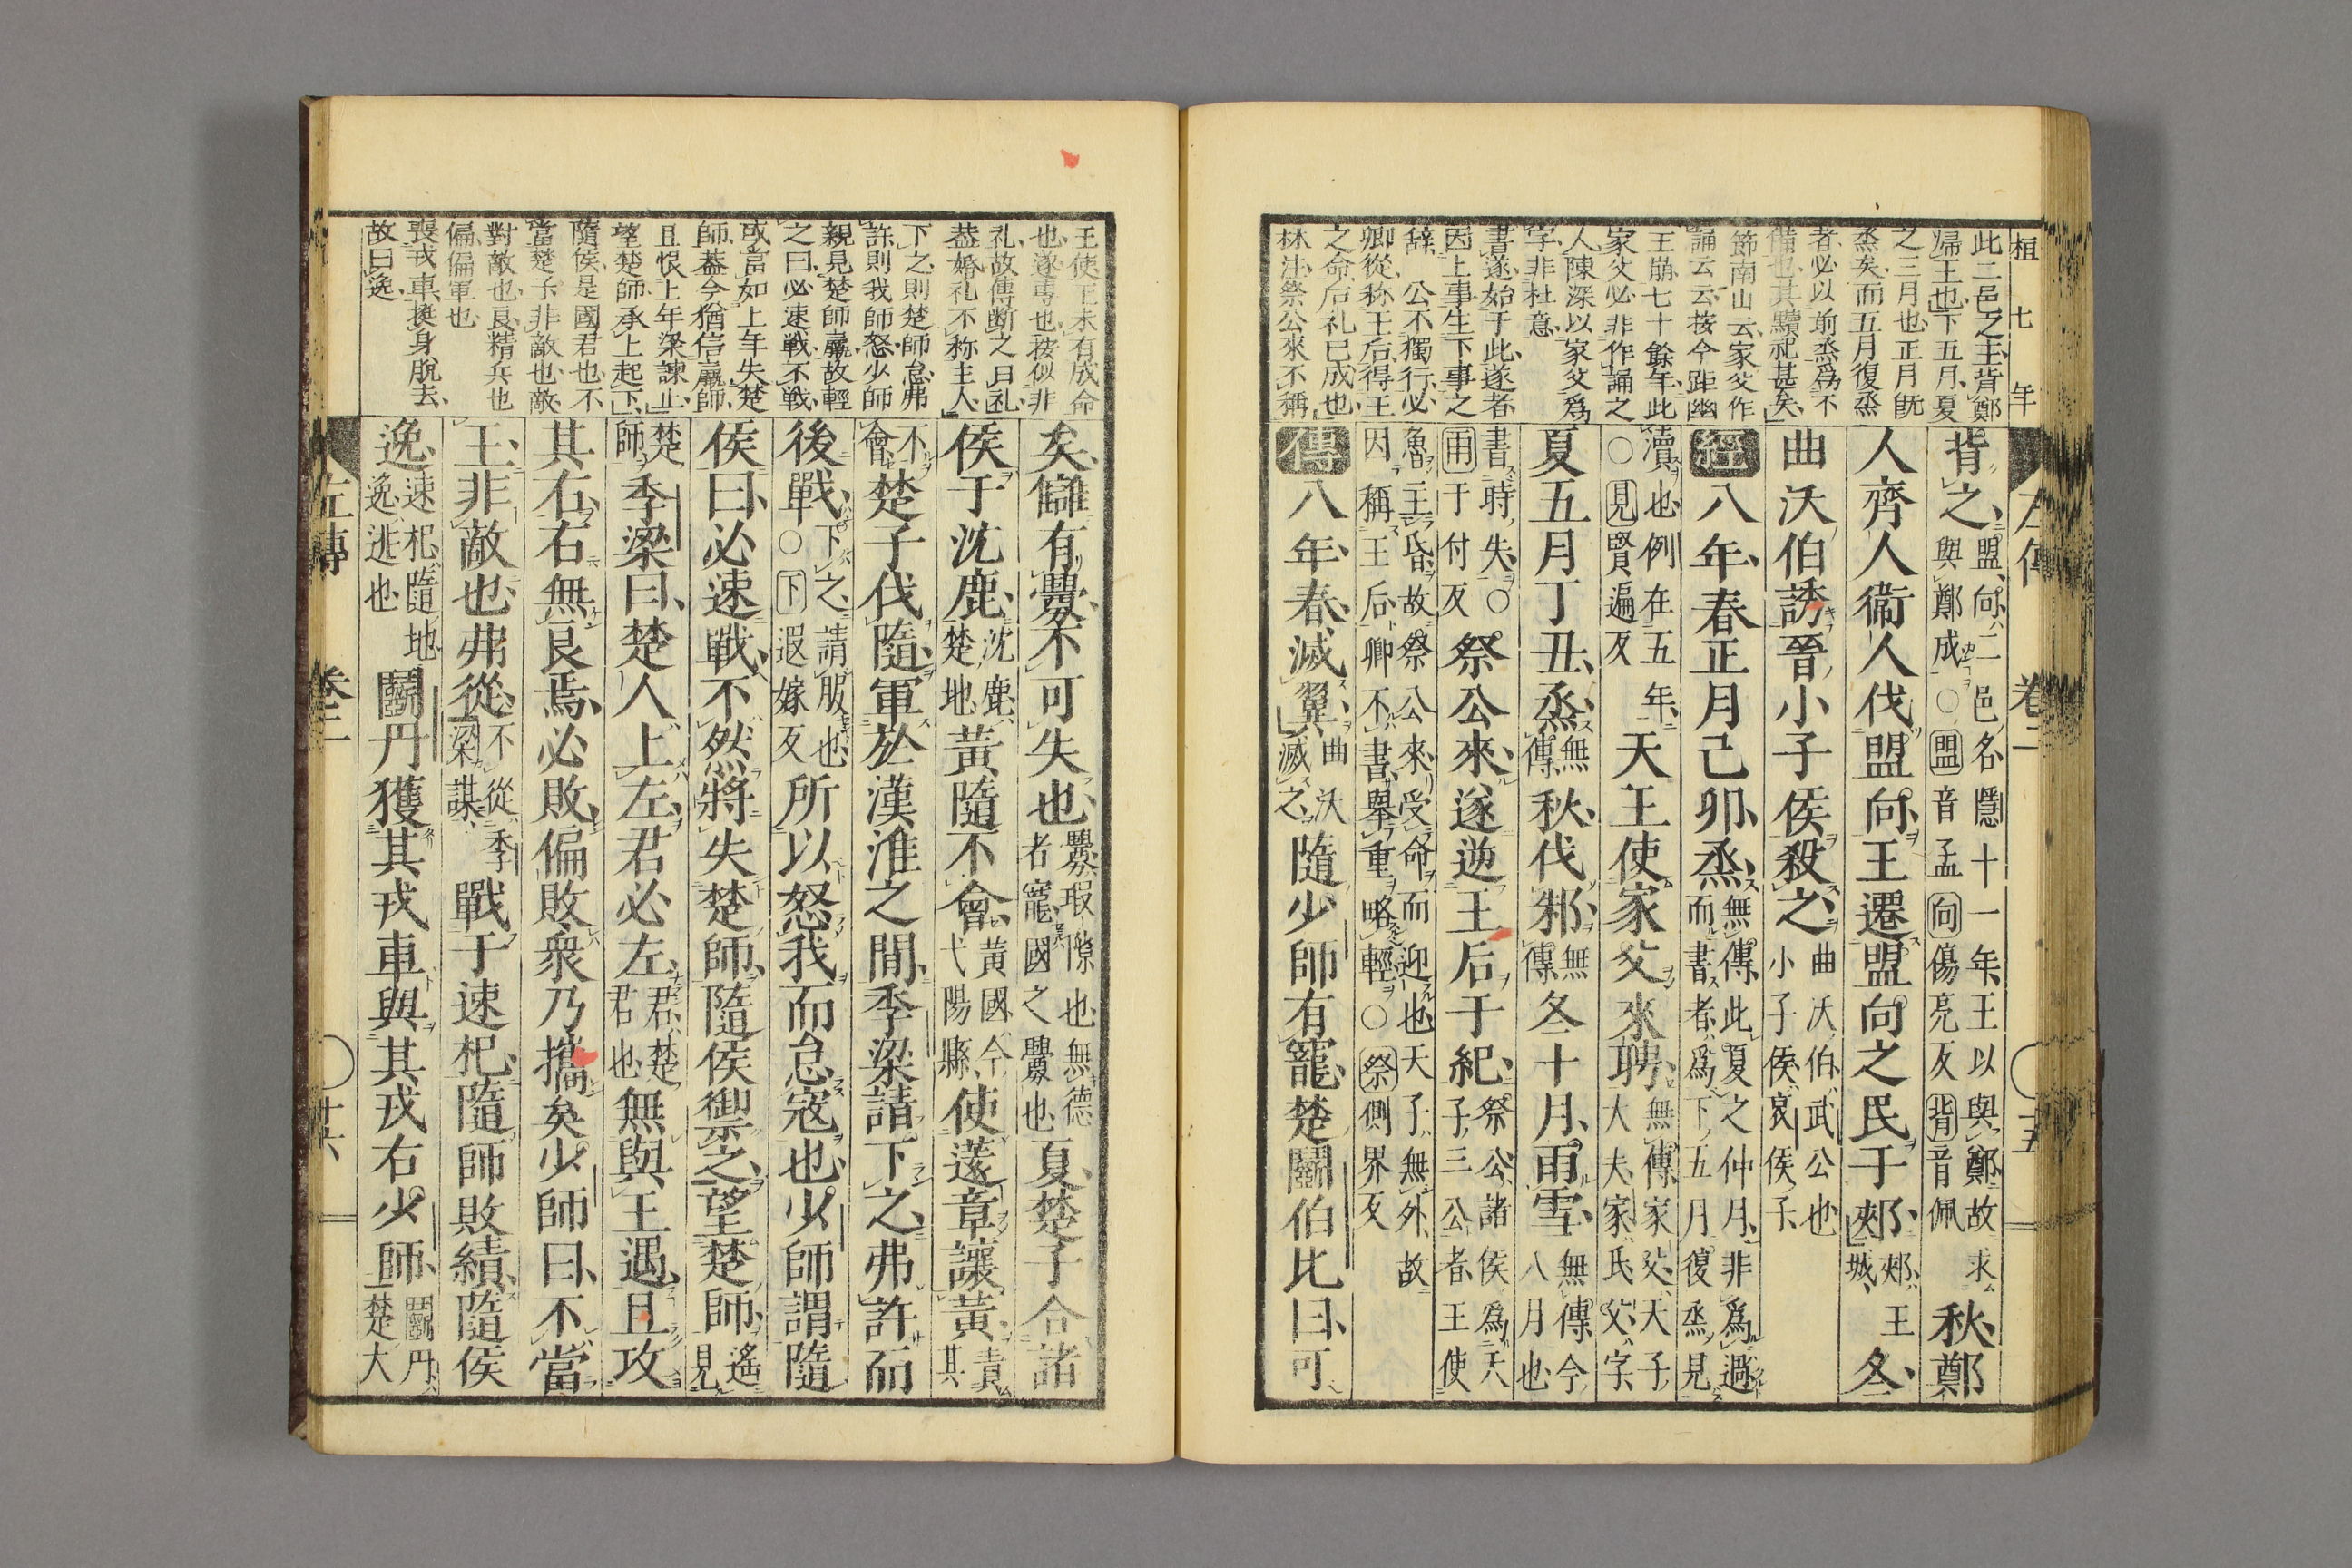 桓 七 年
左傳 卷二 十五
此二邑之王背鄭
歸王也下五月夏
之三月也正月既
烝矣而五月復烝
者必以前烝為不
備也其黷祀甚矣
節南山云家父作
誦云云按今距幽
王崩七十餘年此
家父必非作誦之
人陳深以家父為
字非杜意
書遂始于此遂者
因上事生下事之
辞 公不獨行必
卿從称王后得王
之命后礼已成也
林注祭公來不稱
背之盟向二邑名隱十一年王以與鄭故求
與鄭成○盟音孟向傷亮反背音佩秋鄭
人齊人衞人伐盟向王遷盟向之民于郟郟王
城冬
曲沃伯誘晉小子侯殺之曲沃伯武公也
小子侯哀侯子
經八年春正月己卯烝無傳此夏之仲月非為過
而書者為下五月復烝見
瀆也例在五年
○見賢遍反天王使家父來聘無傳家父天子
大夫家氏父字
夏五月丁丑烝無
傳秋伐邾無
傳冬十月雨雪無傳今
八月也
書時失○
雨于付反祭公來遂逆王后于紀祭公諸侯為天
子三公者王使
魯主昏故祭公來受命而迎也天子無外故
因稱王后卿不書舉重略輕○祭側界反
傳八年春滅翼曲沃
滅之隨少師有寵楚鬬伯比曰可
王使王未有成命
也遂専也按似非
礼故傳断之曰礼
葢婚礼不称主人
下之則楚師怠弗
許則我師怒少師
親見楚師羸故輕
之曰必速戰不戰
或當如上年失楚
師葢今猶信羸師
且恨上年梁諫止
望楚師承上起下
隨侯是國君也不
當楚子非敵也敵
對敵也良精兵也
偏偏軍也
喪戎車換身脫去
故曰逸
矣讎有釁不可失也釁瑕隙也無德
者寵國之釁也夏楚子合諸
侯于沈鹿沈鹿
楚地黃隨不會黃國今
弋陽縣使薳章讓黃責
其
不
會楚子伐隨軍於漢淮之間季梁請下之弗許而
後戰下之請服也
○下遐嫁反所以怒我而怠寇也少師謂隨
侯曰必速戰不然將失楚師隨侯禦之望楚師遙
見
楚
師季梁曰楚人上左君必左君楚
君也無與王遇且攻
其右右無良焉必敗偏敗衆乃攜矣少師曰不當
王非敵也弗從不從季
梁謀戰于速杞隨師敗績隨侯
逸速杞隨地
逸逃也鬬丹獲其戎車與其戎右少師鬬丹
楚大
左傳 卷二 十六